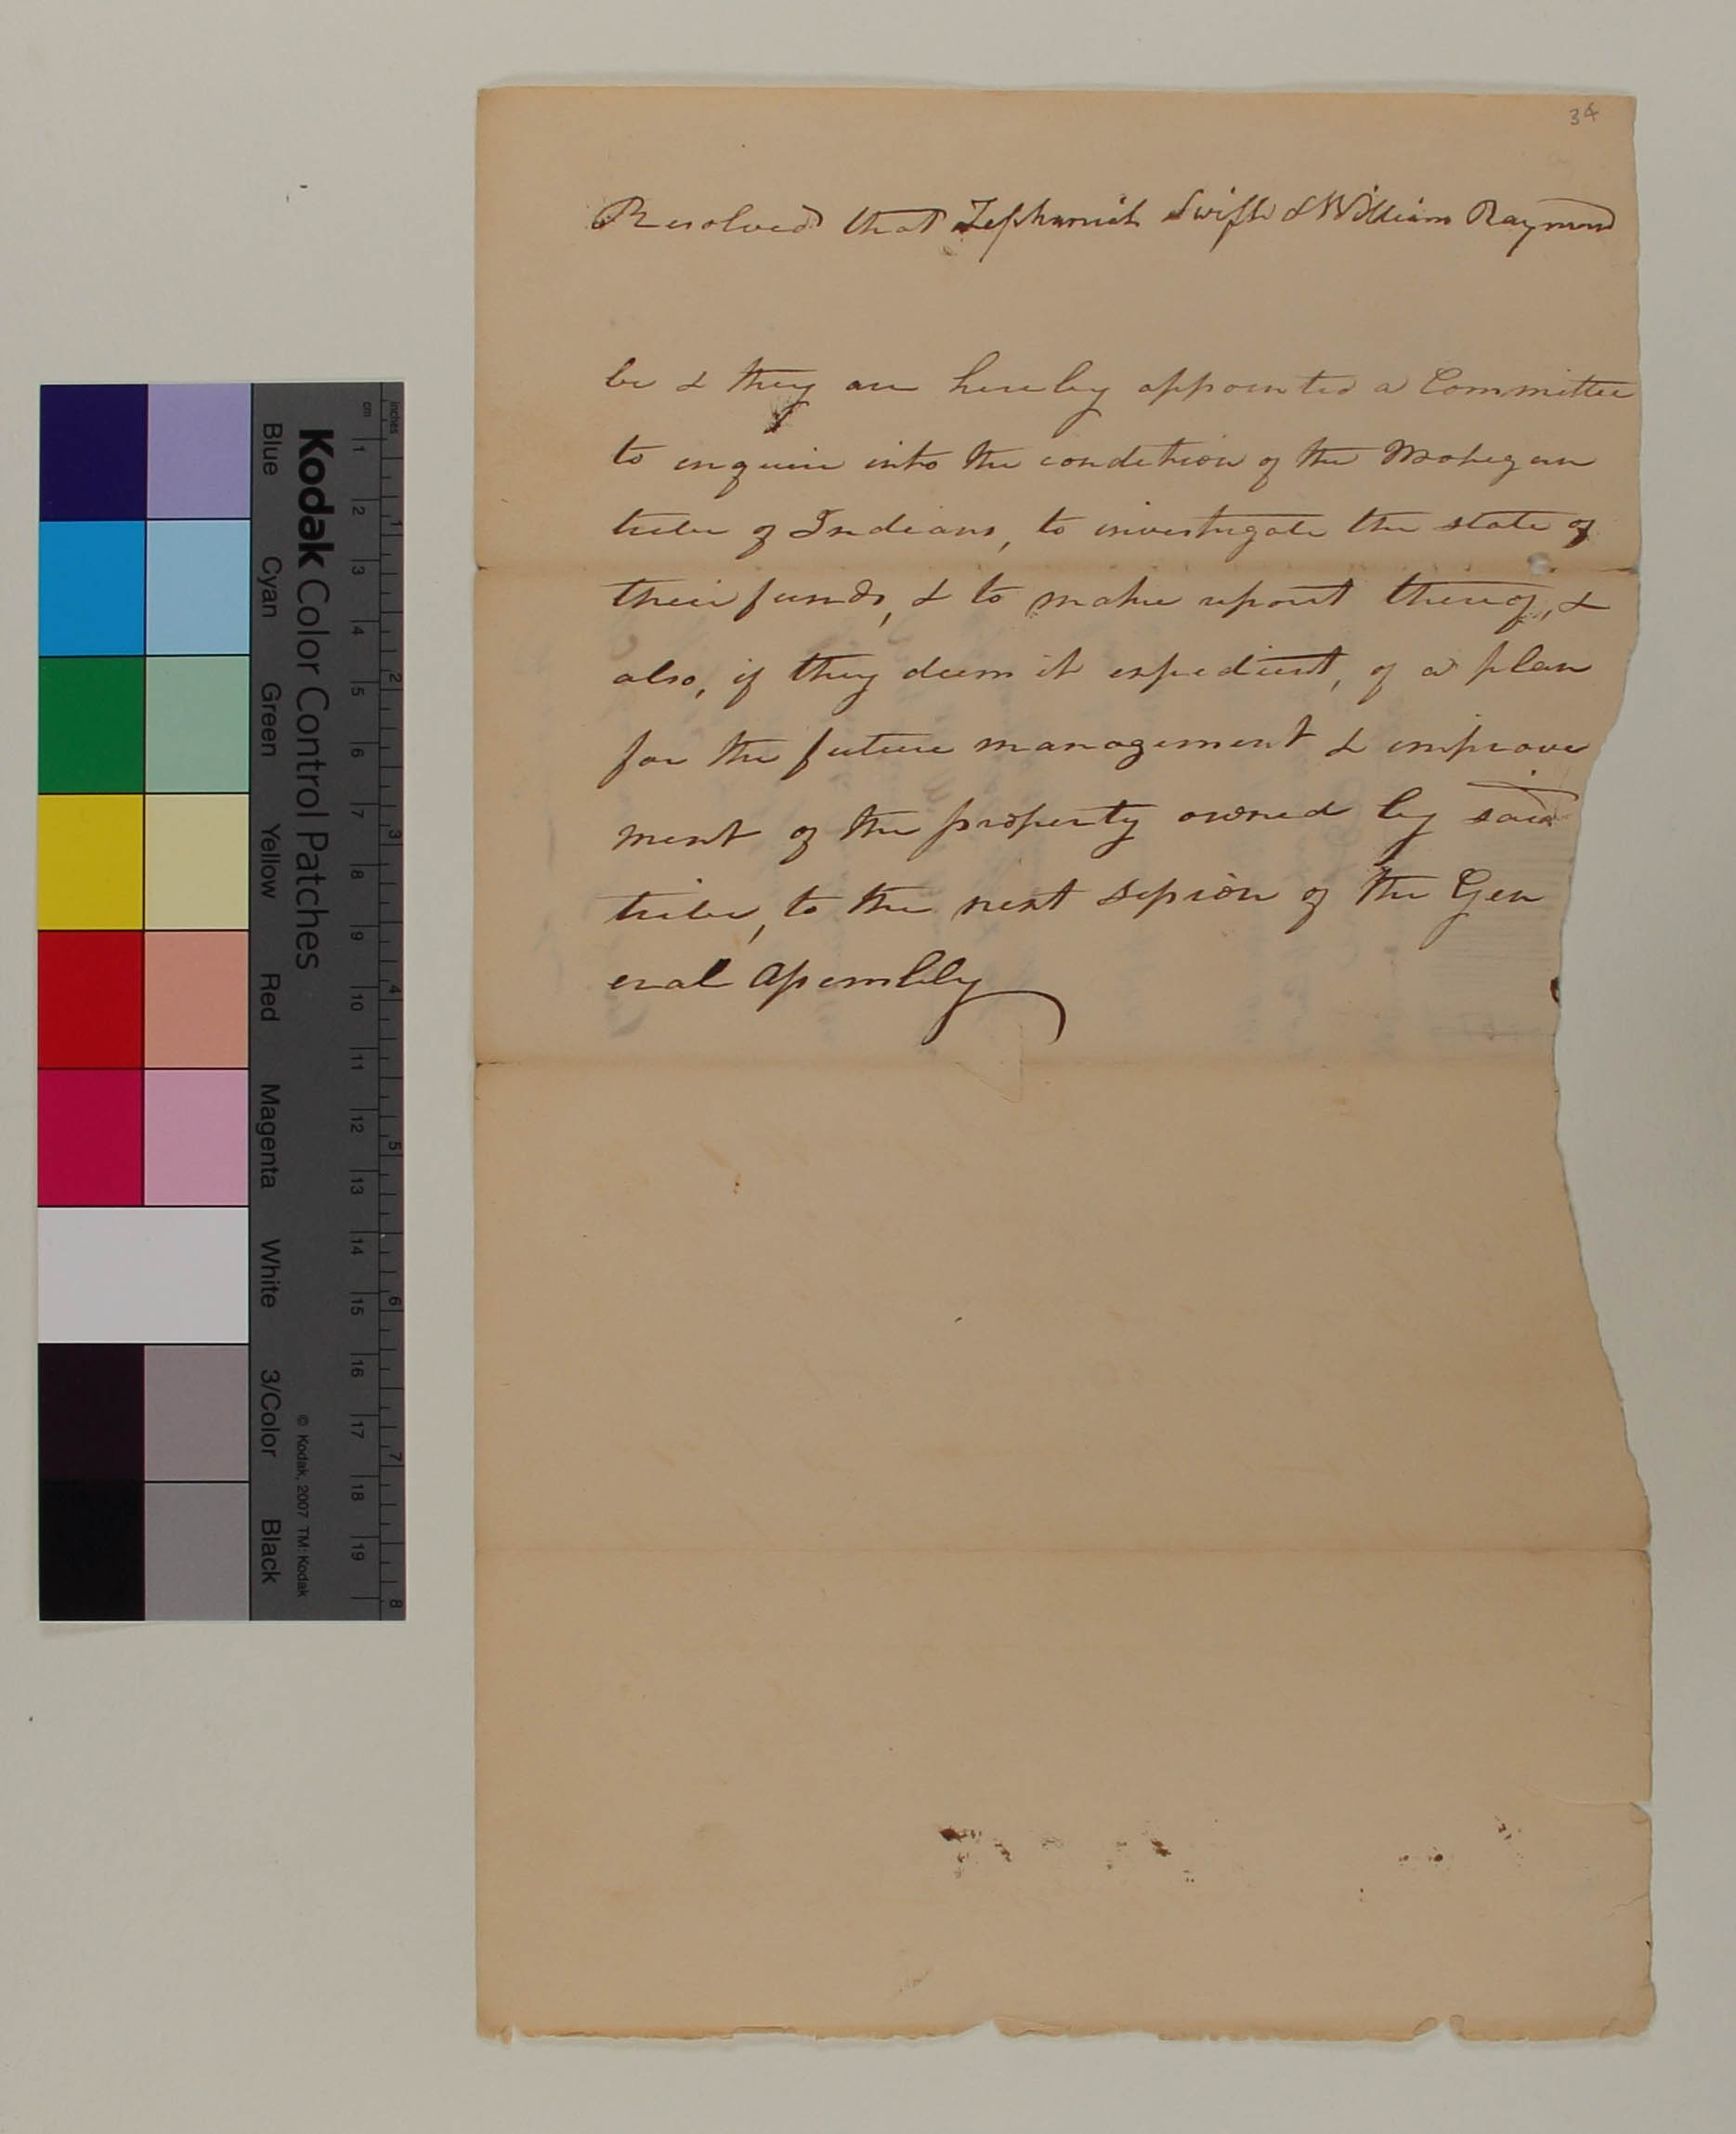 34
Resolved that Zephaniah Swift & William Raymond
be & they are hereby appointed a Committee
to enquire into the condition of the Mohegan
tribe of Indians, to investigate the state of
their funds, & to make report thereof, &
also, if they deem it expedient, of a plan
for the future management & improve
ment of the property owned by said
tribe, to the next session of the Gen
eral Assembly
Kodak Color Control Patches
© Kodak, 2007 TM: Kodak
Blue Cyan Green Yellow Red Magenta White 3/Color Black
cm 1 2 3 4 5 6 7 8 9 10 11 12 13 14 15 16 17 18 19
inches 1 2 3 4 5 6 7 8